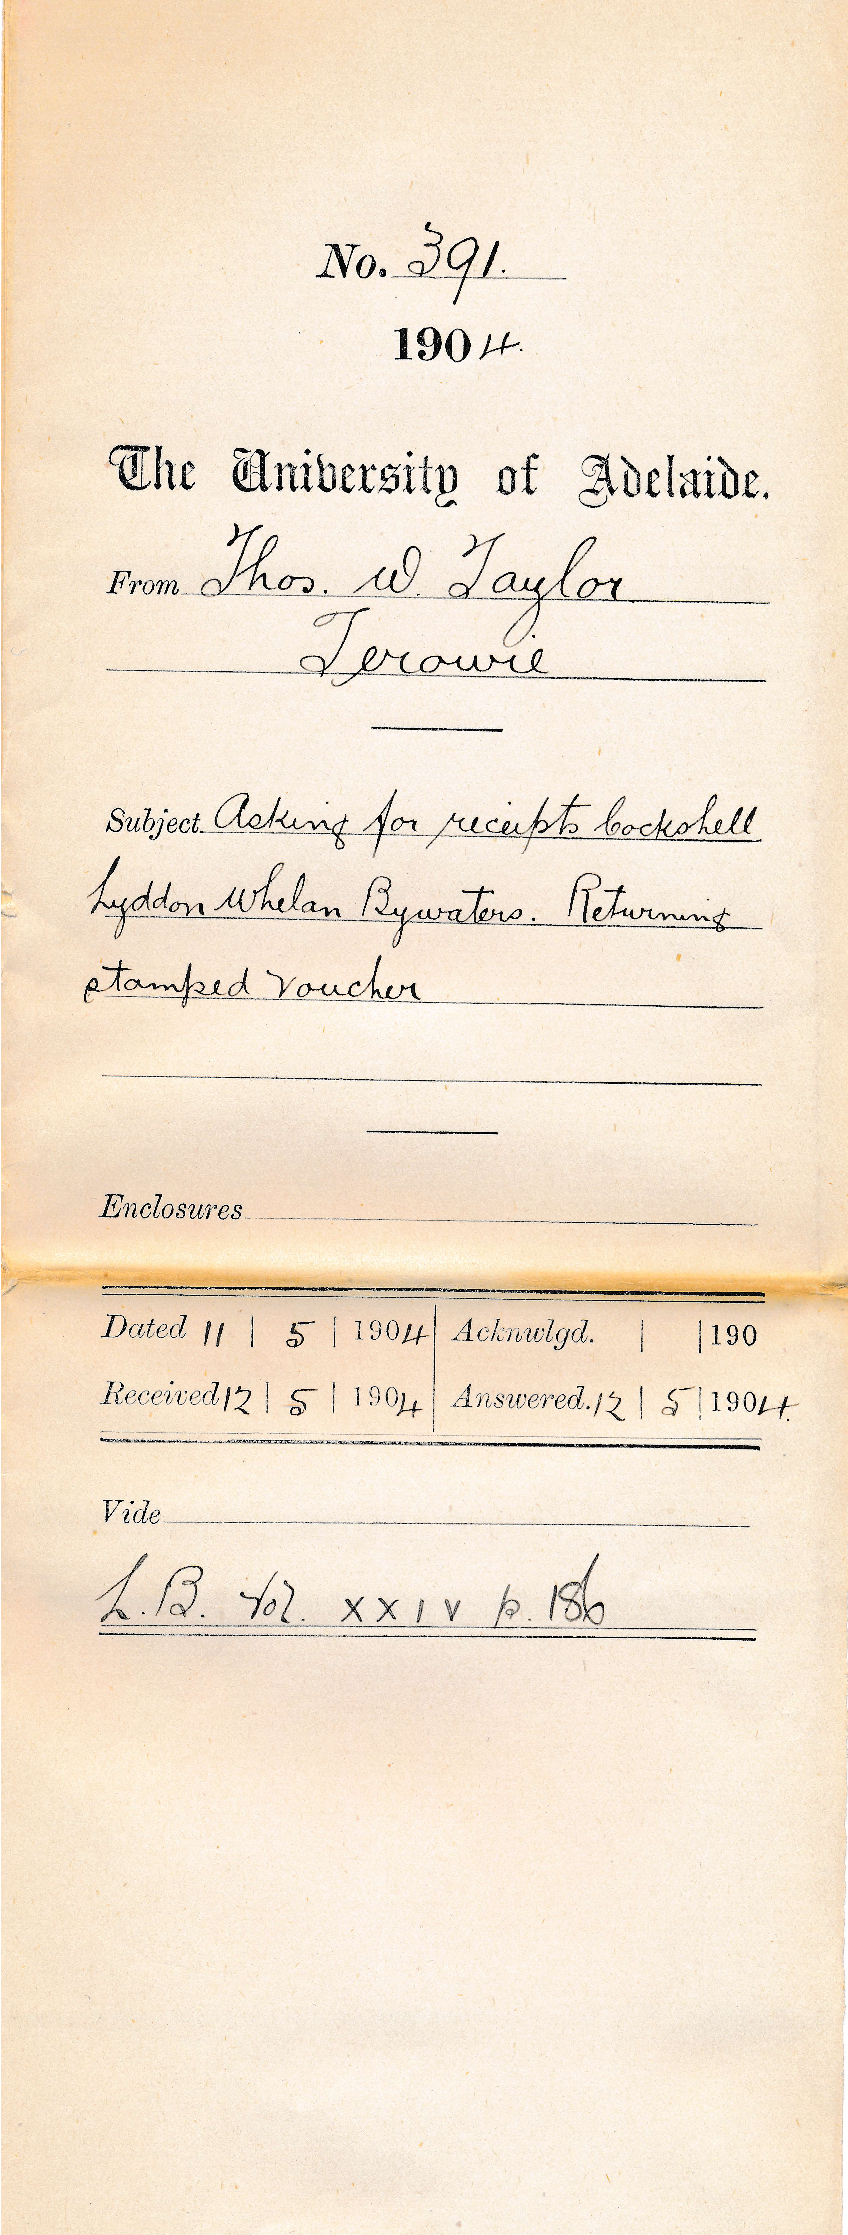 No. 391.
1904.
The University of Adelaide.
From Thos. W. Taylor
Terowie
Subject. Asking for receipts Cockshell
Lyddon Whelan Bywaters. Returning
stamped voucher
Enclosures
Dated 11 | 5 | 1904 Acknwlgd. | | 190
Received 12 | 5 | 1904 Answered. 12 | 5 | 1904.
Vide
L.B. Vol. XXIV p. 186